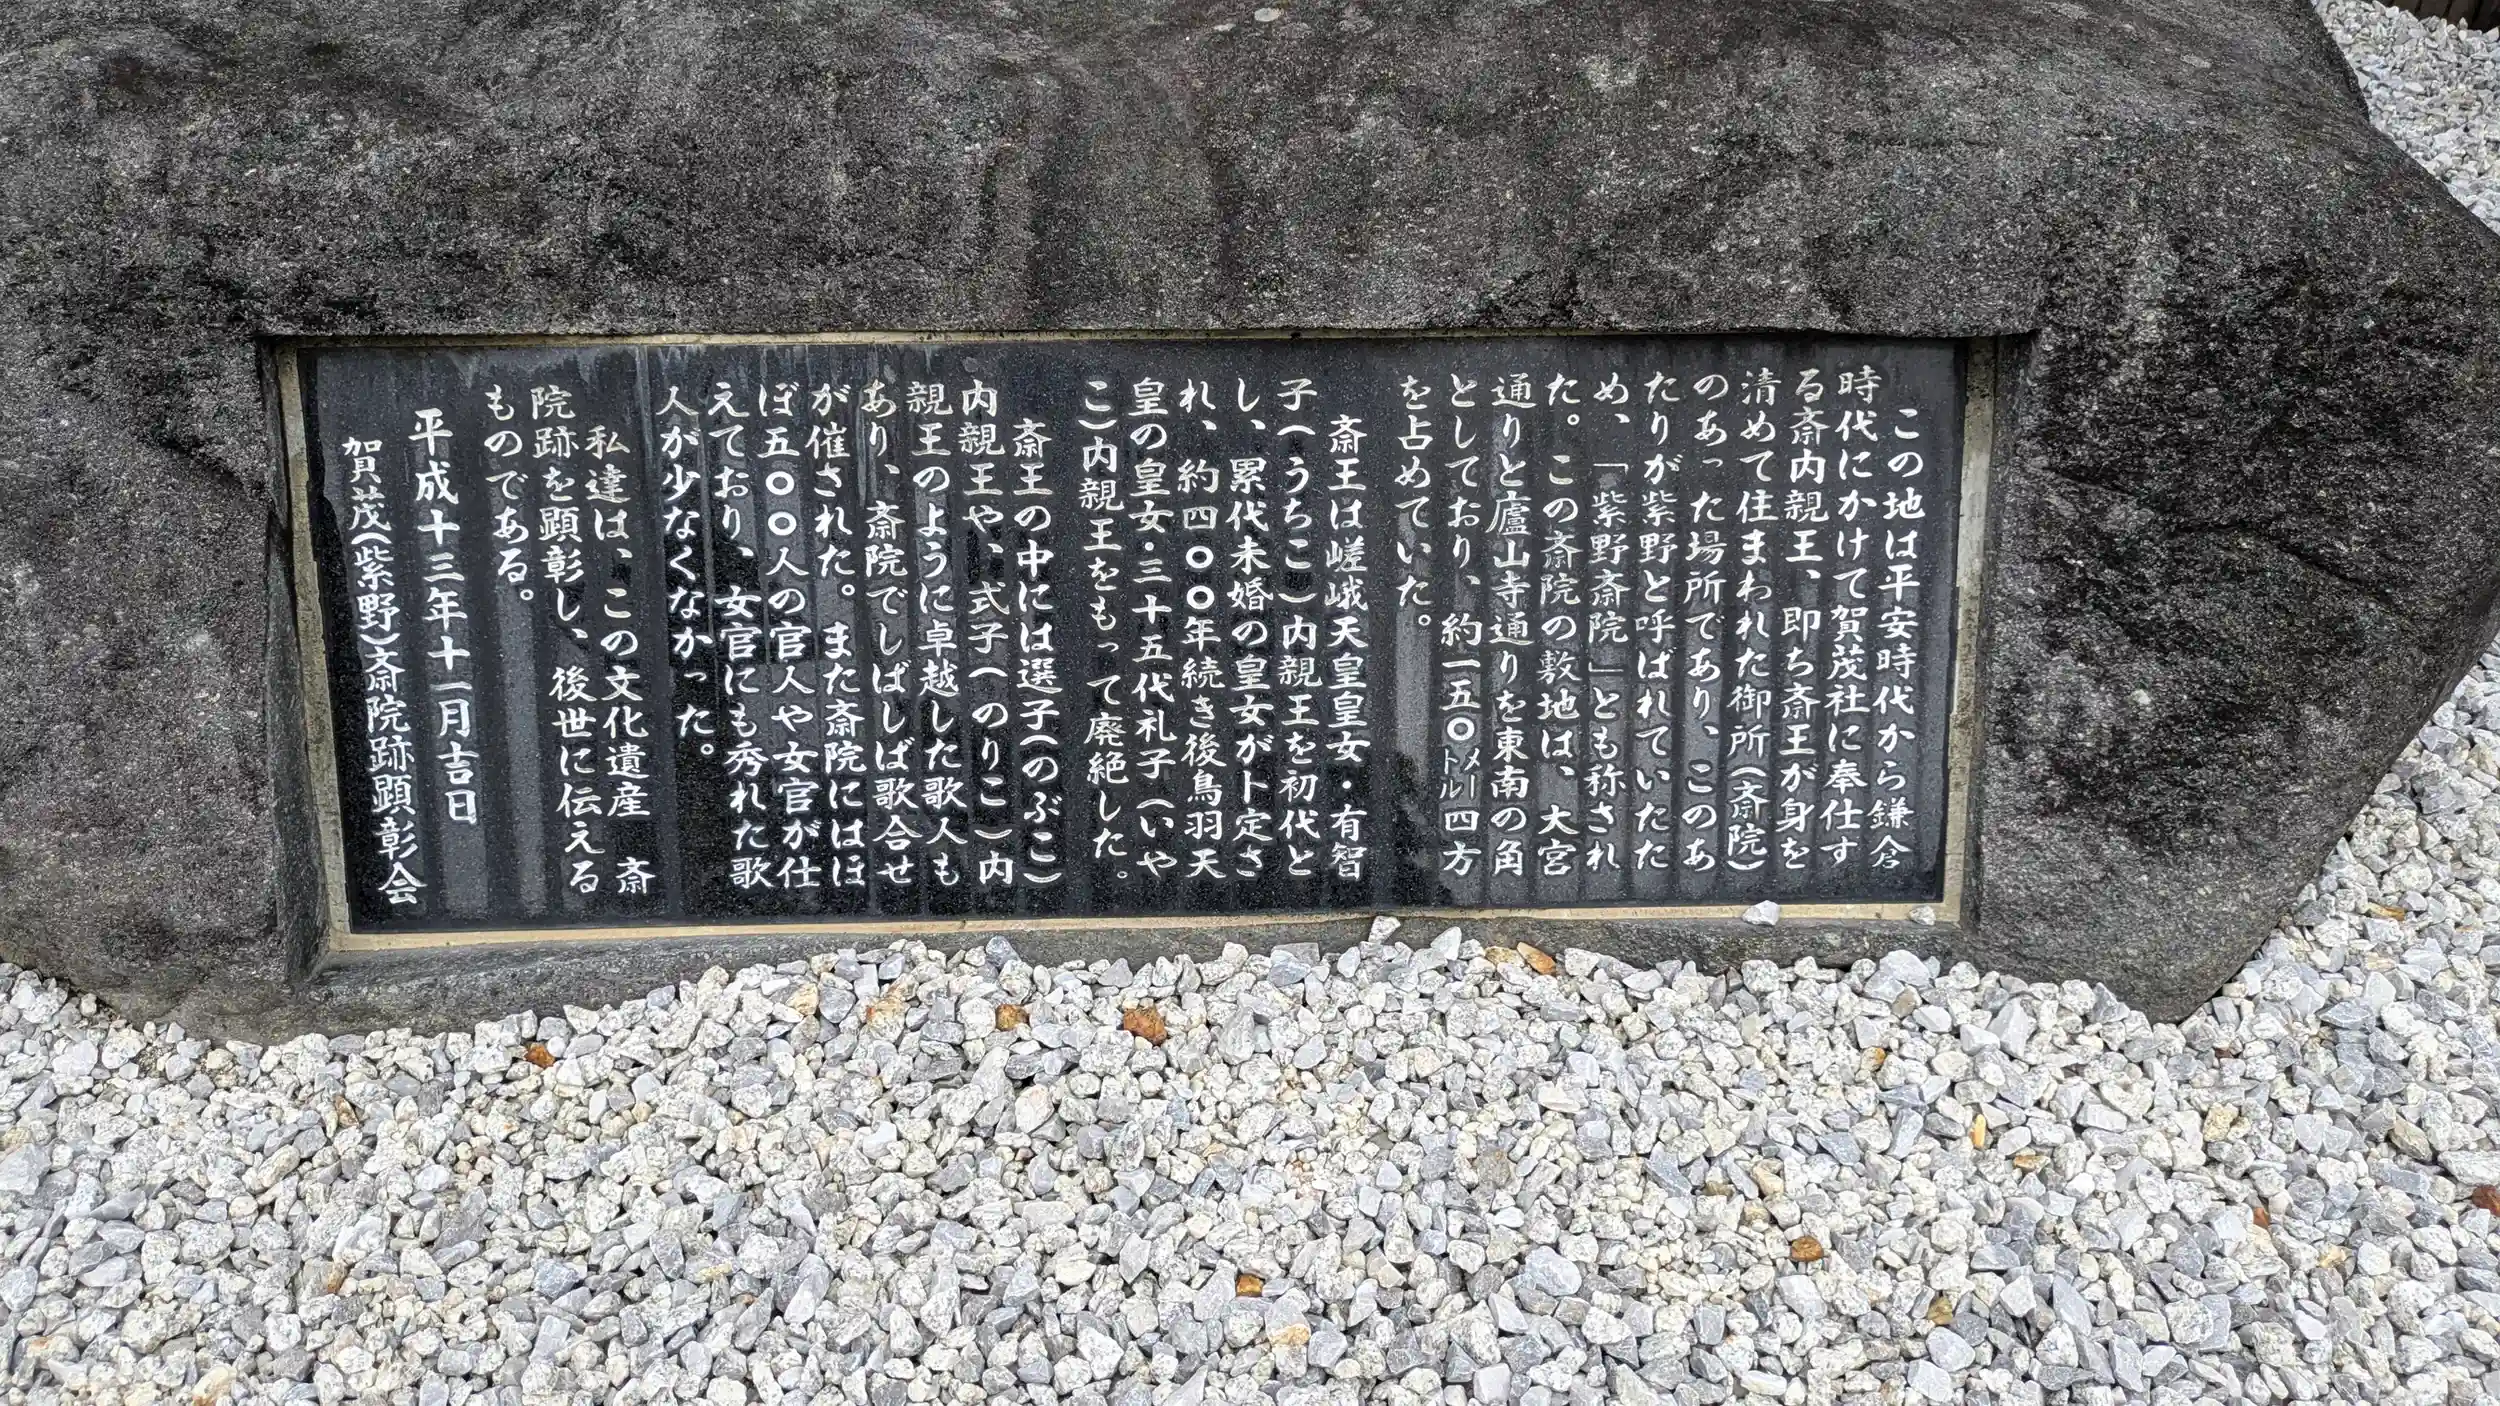 この地は平安時代から鎌倉
時代にかけて賀茂社に奉仕す
る斎内親王、即ち斎王が身を
清めて住まわれた御所(斎院)
のあった場所であり、このあ
たりが紫野と呼ばれていたた
め、「紫野斎院」とも称され
た。この斎院の敷地は、大宮
通りと廬山寺通りを東南の角
としており、約一五〇メートル四方
を占めていた。
斎王は嵯峨天皇皇女・有智
子(うちこ)内親王を初代と
し、累代未婚の皇女が卜定さ
れ、約四〇〇年続き後鳥羽天
皇の皇女・三十五代礼子(いや
こ)内親王をもって廃絶した。
斎王の中には選子(のぶこ)
内親王や、式子(のりこ)内
親王のように卓越した歌人も
あり、斎院でしばしば歌合せ
が催された。また斎院にはほ
ぼ五〇〇人の官人や女官が仕
えており、女官にも秀れた歌
人が少なくなかった。
私達は、この文化遺産 斎
院跡を顕彰し、後世に伝える
ものである。
平成十三年十一月吉日
賀茂(紫野)斎院跡顕彰会